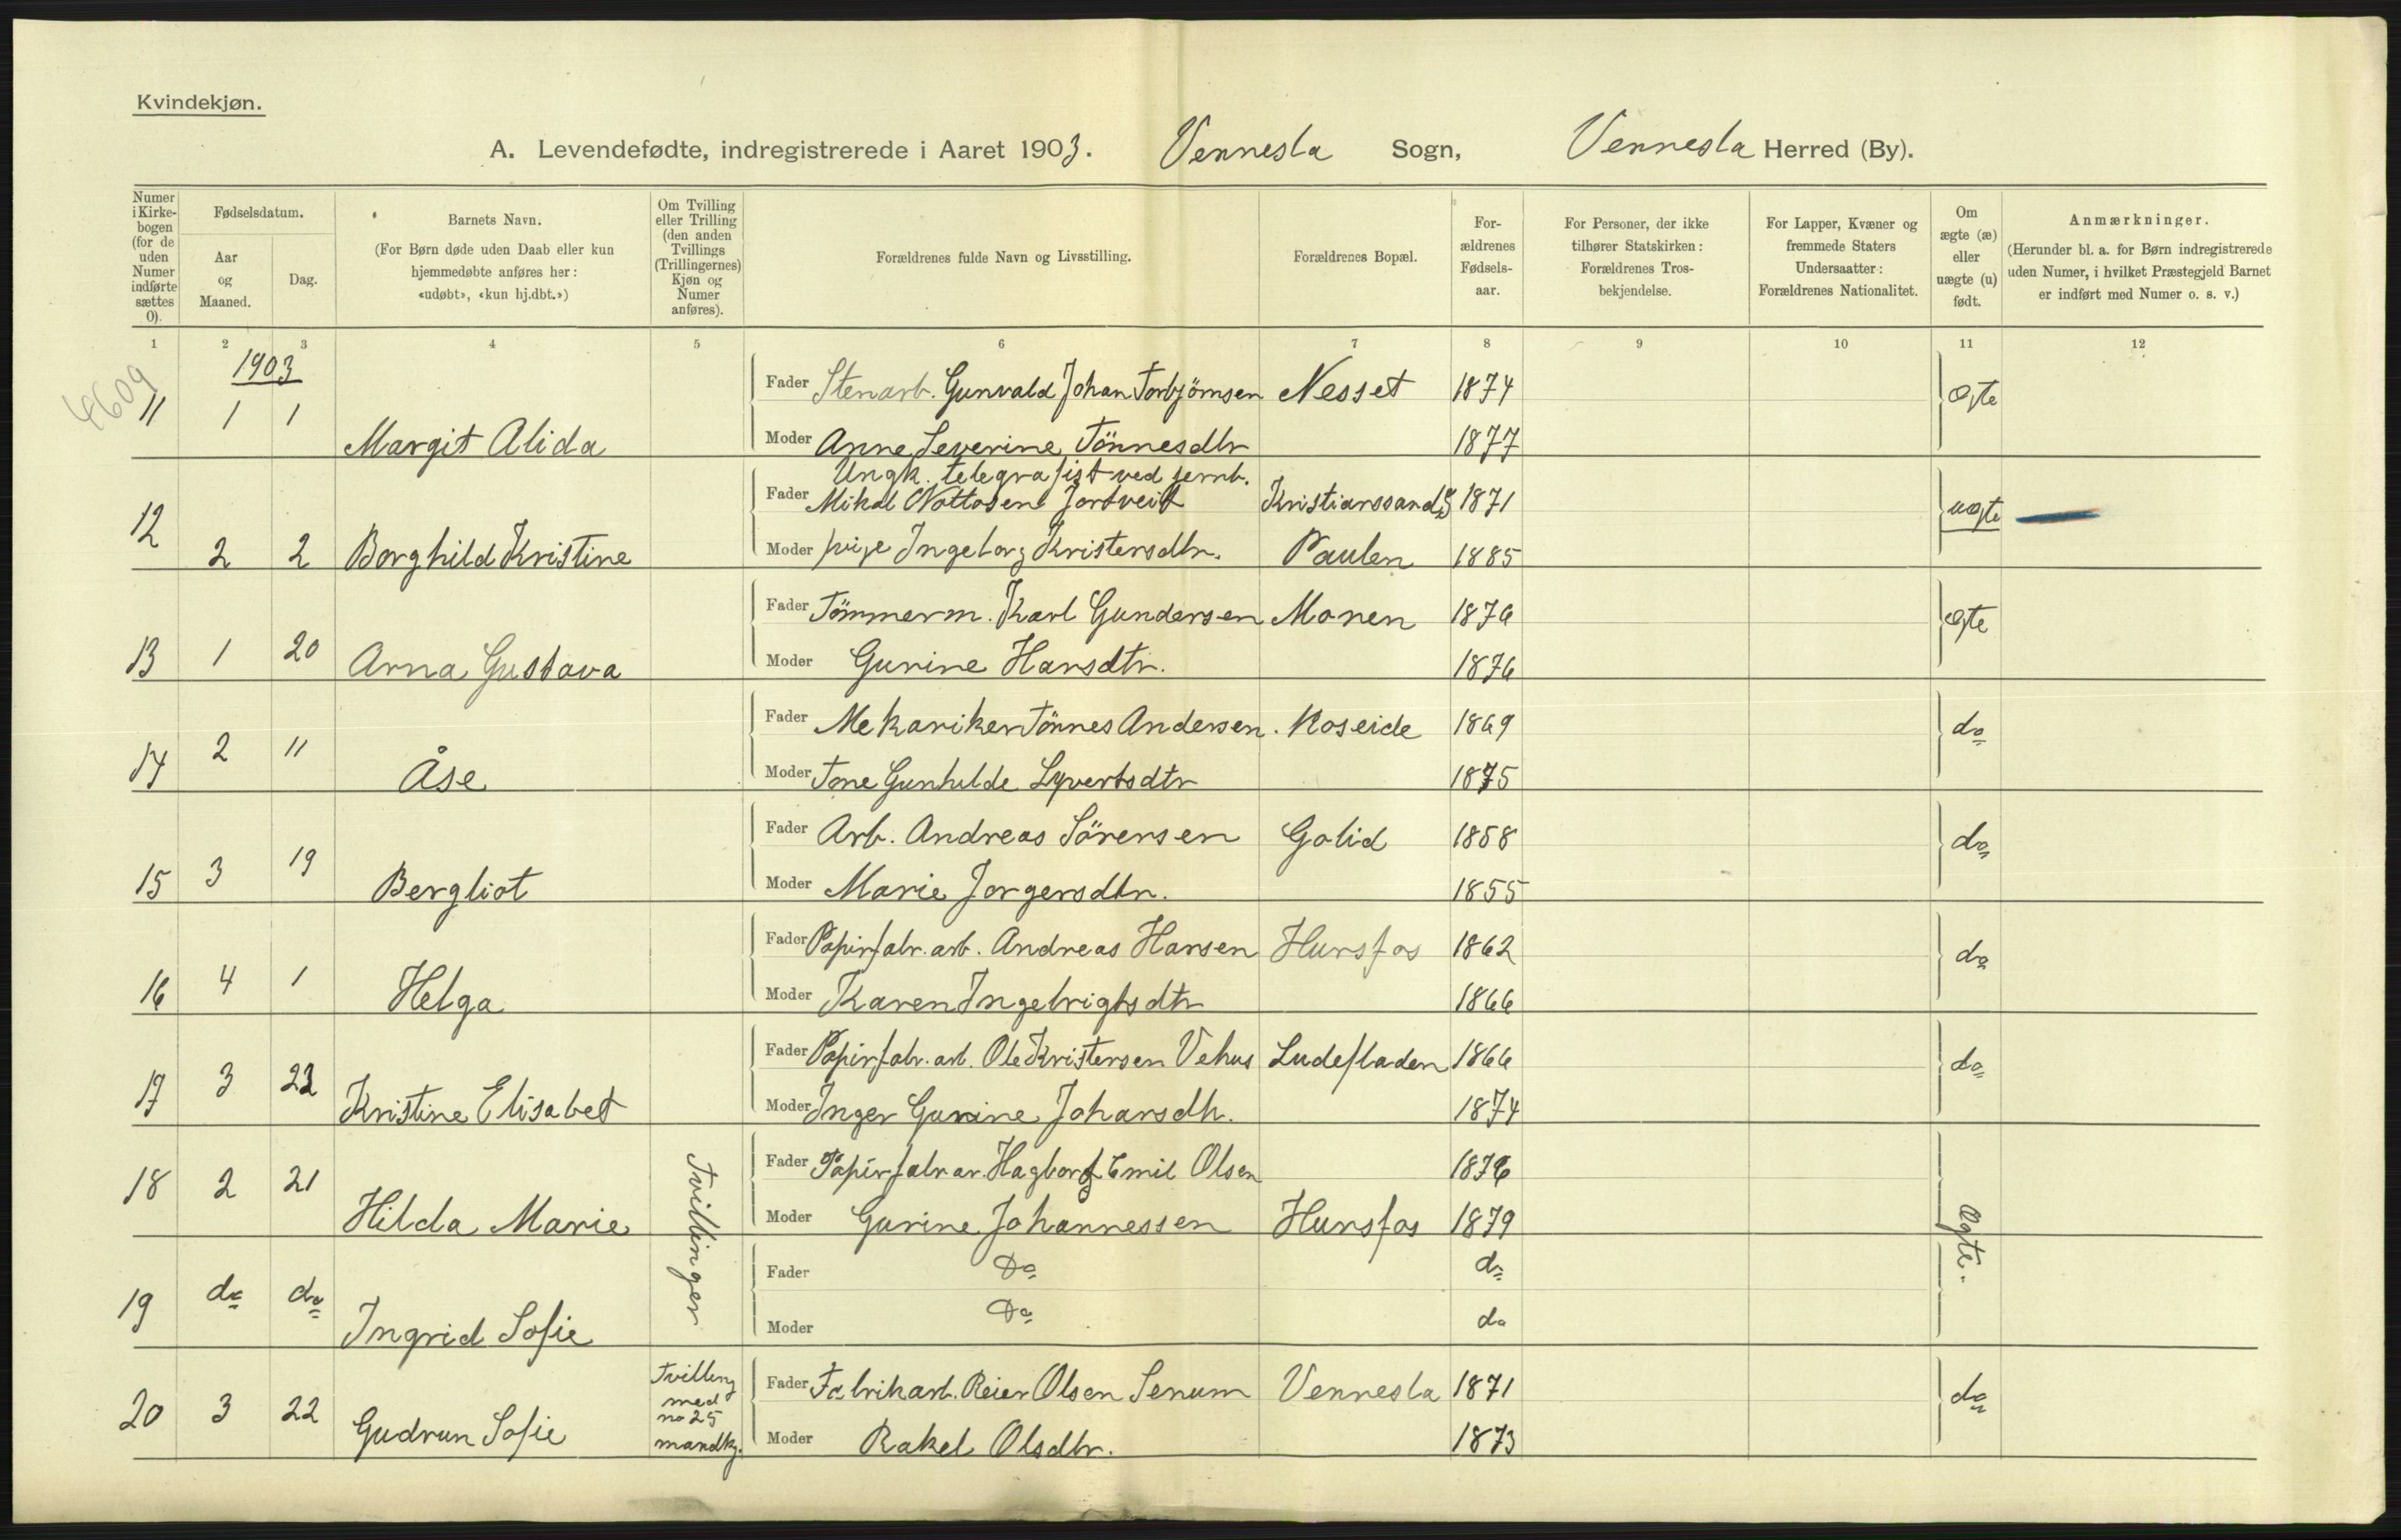 Kvindekjøn.
A. Levendefødte, indregistrerede i Aaret 1903. Vennesla Sogn, Vennesla Herred (By).
Numer i Kirkebogen (for de uden Numer indførte sættes 0).
Fødselsdatum.
Aar og Maaned.
Dag.
Barnets Navn.
(For Børn døde uden Daab eller kun hjemmedøbte anføres her: «udøbt», «kun hj.dbt.»)
Om Tvilling eller Trilling (den anden Tvillings (Trillingernes) Kjøn og Numer anføres).
Forældrenes fulde Navn og Livsstilling.
Forældrenes Bopæl.
Forældrenes Fødselsaar.
For Personer, der ikke tilhører Statskirken: Forældrenes Trosbekjendelse.
For Lapper, Kvæner og fremmede Staters Undersaatter: Forældrenes Nationalitet.
Om ægte (æ) eller uægte (u) født.
Anmærkninger.
(Herunder bl. a. for Børn indregistrerede uden Numer, i hvilket Præstegjeld Barnet er indført med Numer o. s. v.)
1 2 3 4 5 6 7 8 9 10 11 12
4609
1903
11 1 1 Margit Alida
Fader Stenarb. Gunvald Johan Torbjörnsen Nesset 1874 Ægte
Moder Anne Severine Tönnesdtr 1877
Ungk. telegrafist ved jernb.
12 2 2 Borghild Kristine
Fader Mikal Nottosen Jortveit Kristianssand S 1871 uægte
Moder pige Ingeborg Kristensdtr. Paulen 1885
13 1 20 Arna Gustava
Fader Tömmerm. Karl Gundersen Monen 1876 ægte
Moder Gurine Hansdtr. 1876
14 2 11 Åse
Fader Mekaniker Tönnes Andersen. Moseide 1869 do
Moder Tone Gunhilde Syvertsdtr 1875
15 3 19 Bergliot
Fader Arb. Andreas Sörensen Golid 1858 do
Moder Marie Jorgensdtr. 1855
16 4 1 Helga
Fader Papirfabr. arb. Andreas Hansen Hunsfos 1862 do
Moder Karen Ingebrigtsdtr 1866
17 3 22 Kristine Elisabet
Fader Papirfabr. arb. Ole Kristensen Vehus Ludefladen 1866 do
Moder Inger Gurine Johansdtr. 1874
18 2 21 Hilda Marie Tvillinger
Fader Papirfabr ar. Hagbart Emil Olsen 1876
Moder Gurine Johannessen Hunsfos 1879 Ægte.
19 do do Ingrid Sofie
Fader Do do
Moder Do do
20 3 22 Gudrun Sofie Tvilling med no 25 mandkj.
Fader Fabrikarb. Reier Olsen Senum Vennesla 1871 do
Moder Rakel Olsdtr. 1873